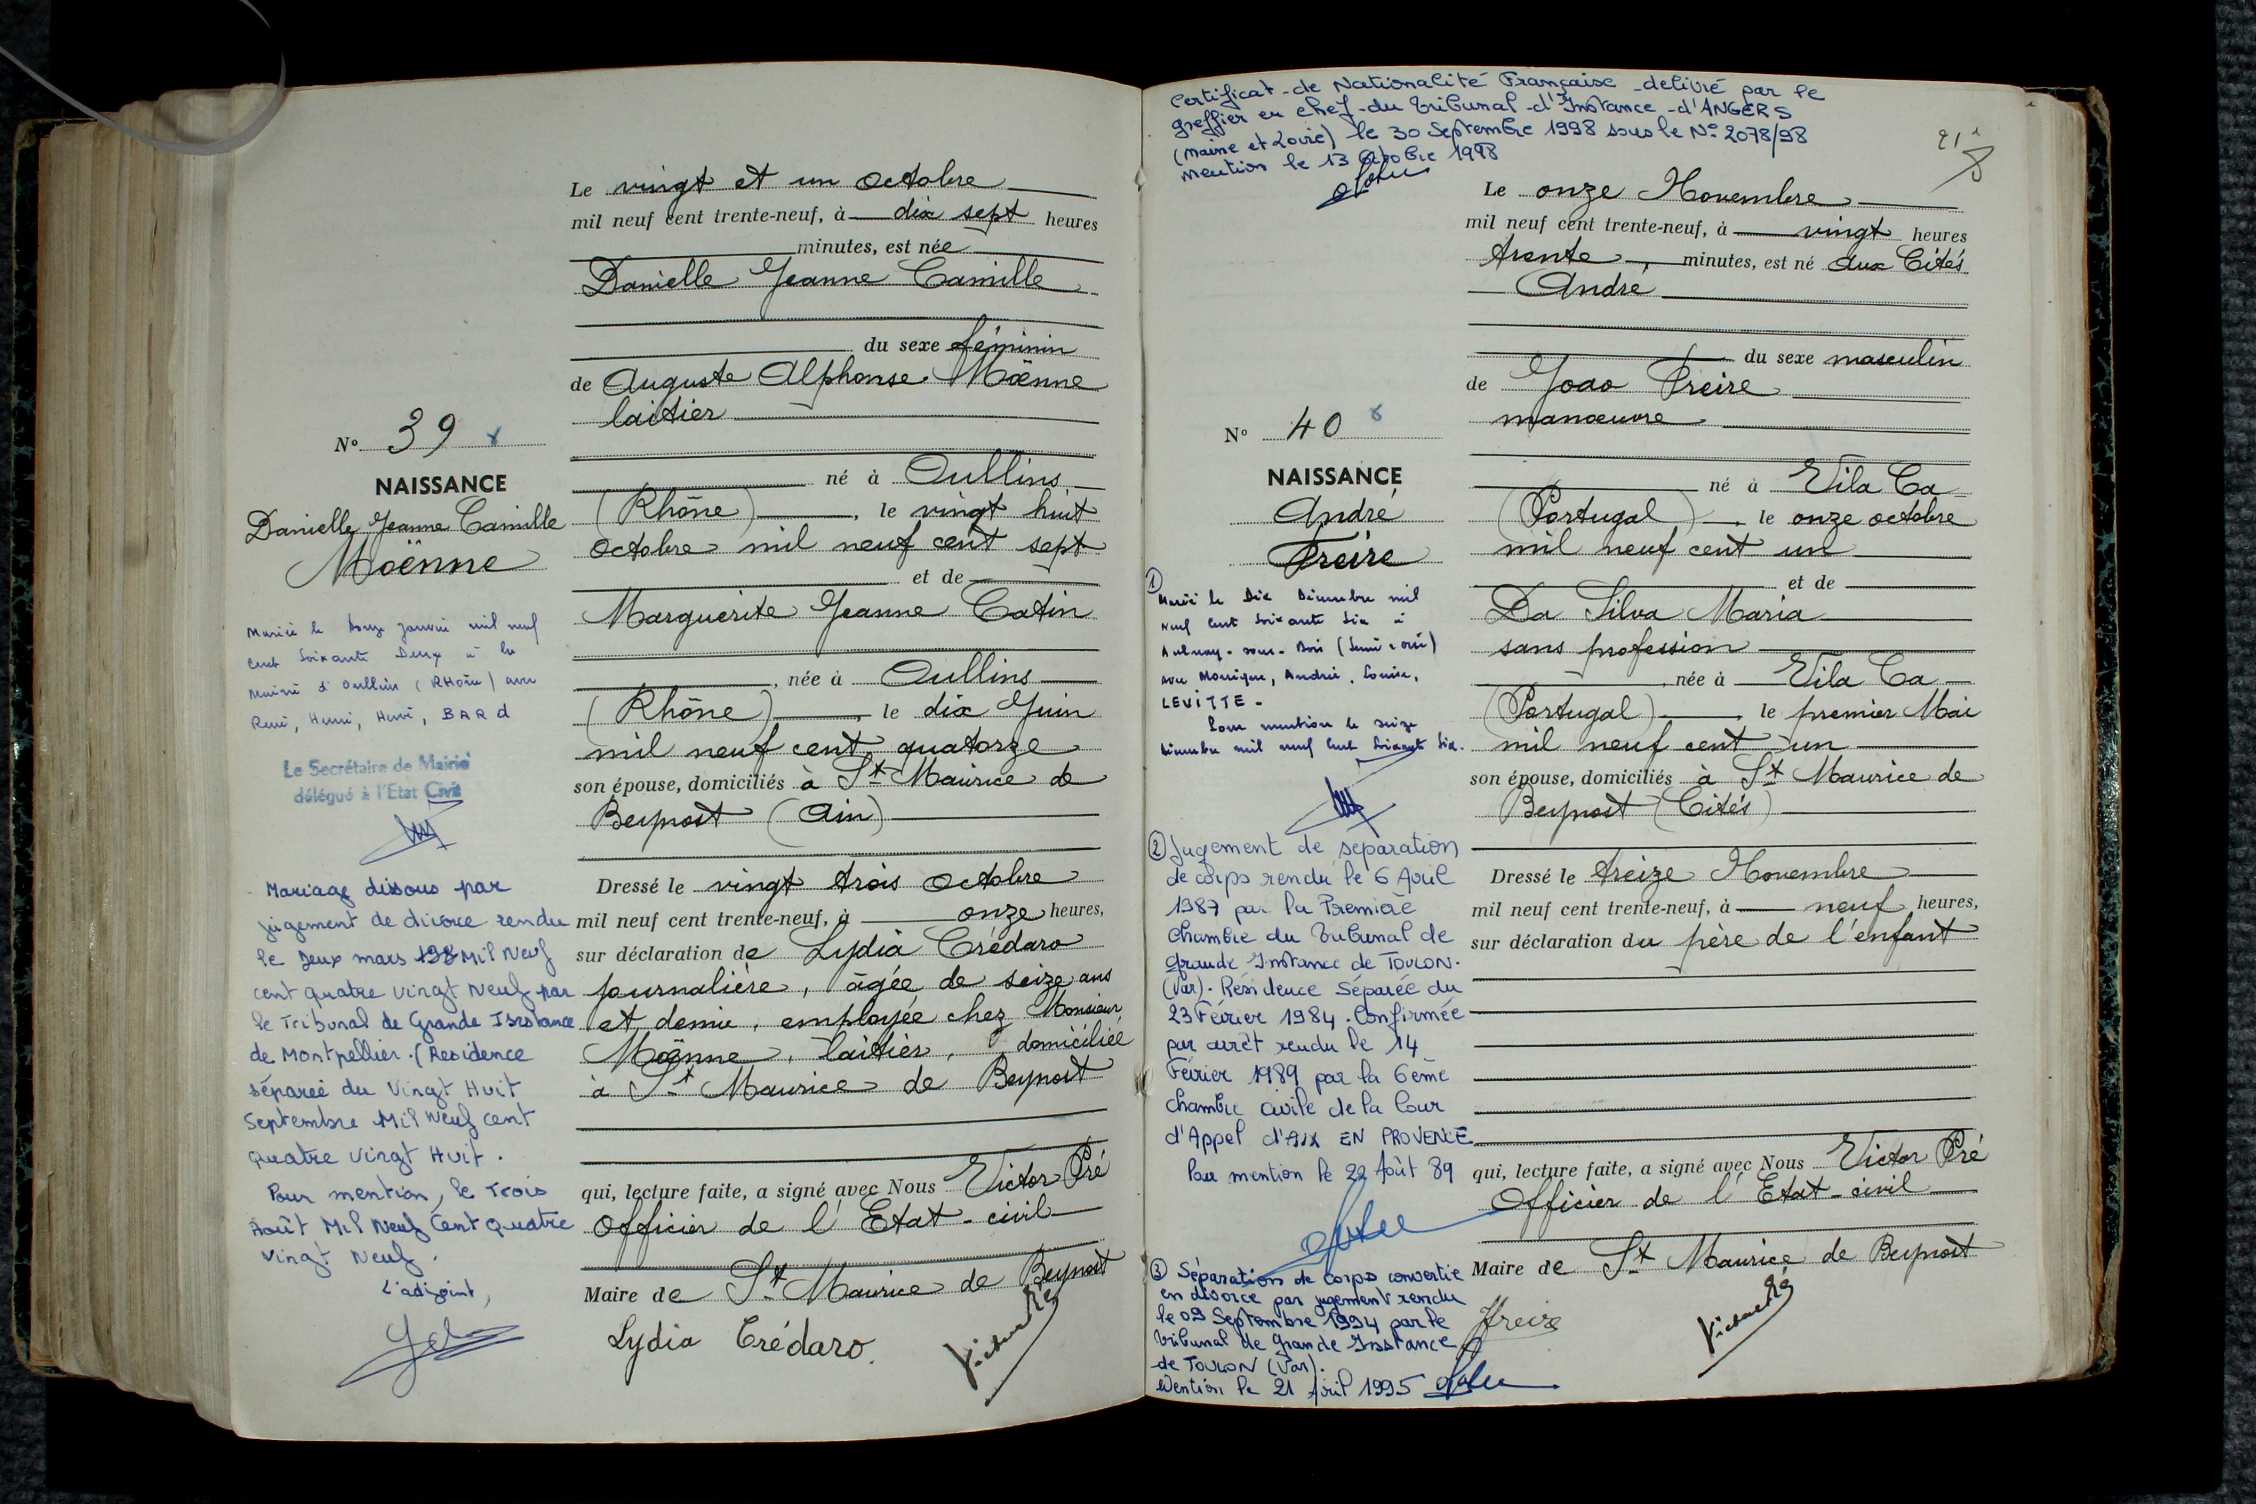 Le vingt et un Octobre
mil neuf cent trente-neuf, à dix sept heures
minutes, est née
Danielle Jeanne Camille
du sexe féminin
de Auguste Alphonse Moënne
laitier
né à Oullins
(Rhône), le vingt huit
Octobre mil neuf cent sept
et de
Marguerite Jeanne Catin
, née à Oullins
(Rhône), le dix Juin
mil neuf cent quatorze
son épouse, domiciliés à St Maurice de
Beynost (Ain)
Dressé le vingt trois Octobre
mil neuf cent trente-neuf, à onze heures,
sur déclaration de Lydia Crédaro
journalière, âgée de seize ans
et demie, employée chez Monsieur
Moënne, laitier, domiciliée
à St Maurice de Beynost
qui, lecture faite, a signé avec Nous Victor Pré
Officier de l'Etat-civil
Maire de St Maurice de Beynost
Lydia Crédaro
Victor Pré
N° 39
NAISSANCE
Danielle Jeanne Camille
Moënne
Mariée le Douze Janvier mil neuf
cent Soixante Deux à la
Mairie d'Oullins (Rhône) avec
René, Henri, BARd
Le Secrétaire de Mairie
délégué à l'Etat Civil
Mariage dissous par
jugement de divorce rendu
le Deux mars 198 Mil Neuf
cent quatre vingt Neuf par
le Tribunal de Grande Instance
de Montpellier. (Residence
séparée du Vingt Huit
Septembre Mil Neuf cent
quatre Vingt Huit.
Pour mention, le Trois
Août Mil Neuf Cent quatre
Vingt Neuf.
L'adjoint,
Certificat de Nationalité Française delivré par le
greffier en chef du Tribunal d'Instance d'ANGERS
(Maine et Loire) le 30 Septembre 1998 sous le N° 2078/98
mention le 13 Octobre 1998
Le onze Novembre
mil neuf cent trente-neuf, à vingt heures
trente, minutes, est né aux Cités
André
du sexe masculin
de Joao Freire
manœuvre
né à Vila Ca
(Portugal), le onze octobre
mil neuf cent un
et de
Da Silva Maria
sans profession
, née à Vila Ca
(Portugal), le premier Mai
mil neuf cent un
son épouse, domiciliés à St Maurice de
Beynost (Cités)
Dressé le treize Novembre
mil neuf cent trente-neuf, à neuf heures,
sur déclaration du père de l'enfant
qui, lecture faite, a signé avec Nous Victor Pré
Officier de l'Etat-civil
Maire de St Maurice de Beynost
Freire
Victor Pré
N° 40
NAISSANCE
André
Freire
① Marié le Dix Décembre mil
neuf cent Soixante Six à
Aulnay-sous-Bois (Seine et Oise)
avec Monique, Andrée, Louise,
LEVITTE -
Pour mention le seize
Décembre mil neuf cent Soixante Six.
② Jugement de séparation
de corps rendu le 6 Avril
1987 par la Première
Chambre du Tribunal de
Grande Instance de TOULON.
(Var). Résidence Séparée du
23 Février 1984. Confirmée
par arrêt rendu le 14
Février 1989 par la 6ème
chambre civile de la Cour
d'Appel d'AIX EN PROVENCE
Pour mention le 22 Août 89
③ Séparation de corps convertie
en divorce par jugement rendu
le 09 Septembre 1994 par le
Tribunal de Grande Instance
de TOULON (Var).
Mention le 21 Avril 1995